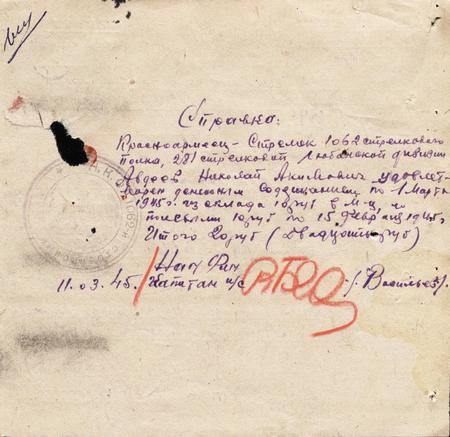 Справка:
Красноармеец-Стрелок 1062 стрелкового
полка, 281 стрелковой Любанской дивизии
Авдеев Николай Акимович удовлет-
ворен денежным содержанием по 1 Марта
1945г. из оклада 10 руб в м-ц и
10 руб по 15 Февр 1945г.
Итого 20 руб (Двадцать руб)
Нач Фин
11.03.45. Капитан и/с /Васильев/.